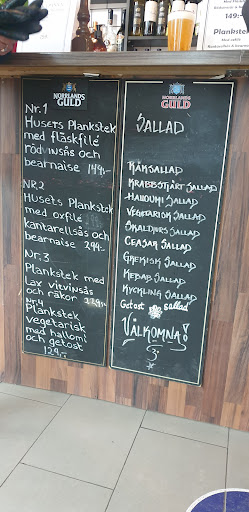 149:-
Plankstek
NORRLANDS
GULD
Nr.1
Husets Plankstek
med fläskfilé
rödvinsås och
bearnaise 149:-
Nr.2
Husets Plankstek
med oxfilé
kantarellsås och
bearnaise 299:-
Nr.3
Plankstek med
Lax vitvinsås
och räkor 229:-
Nr.4
Plankstek
vegetarisk
med hallomi
och getost
129:-
NORRLANDS
GULD
SALLAD
RÄKSALLAD
KRABBSTJÄRT SALLAD
HALLOUMI SALLAD
VEGETARISK SALLAD
SKALDJURS SALLAD
CEASAR SALLAD
GREKISK SALLAD
KEBAB SALLAD
KYCKLING SALLAD
Getost sallad
VÄLKOMNA!